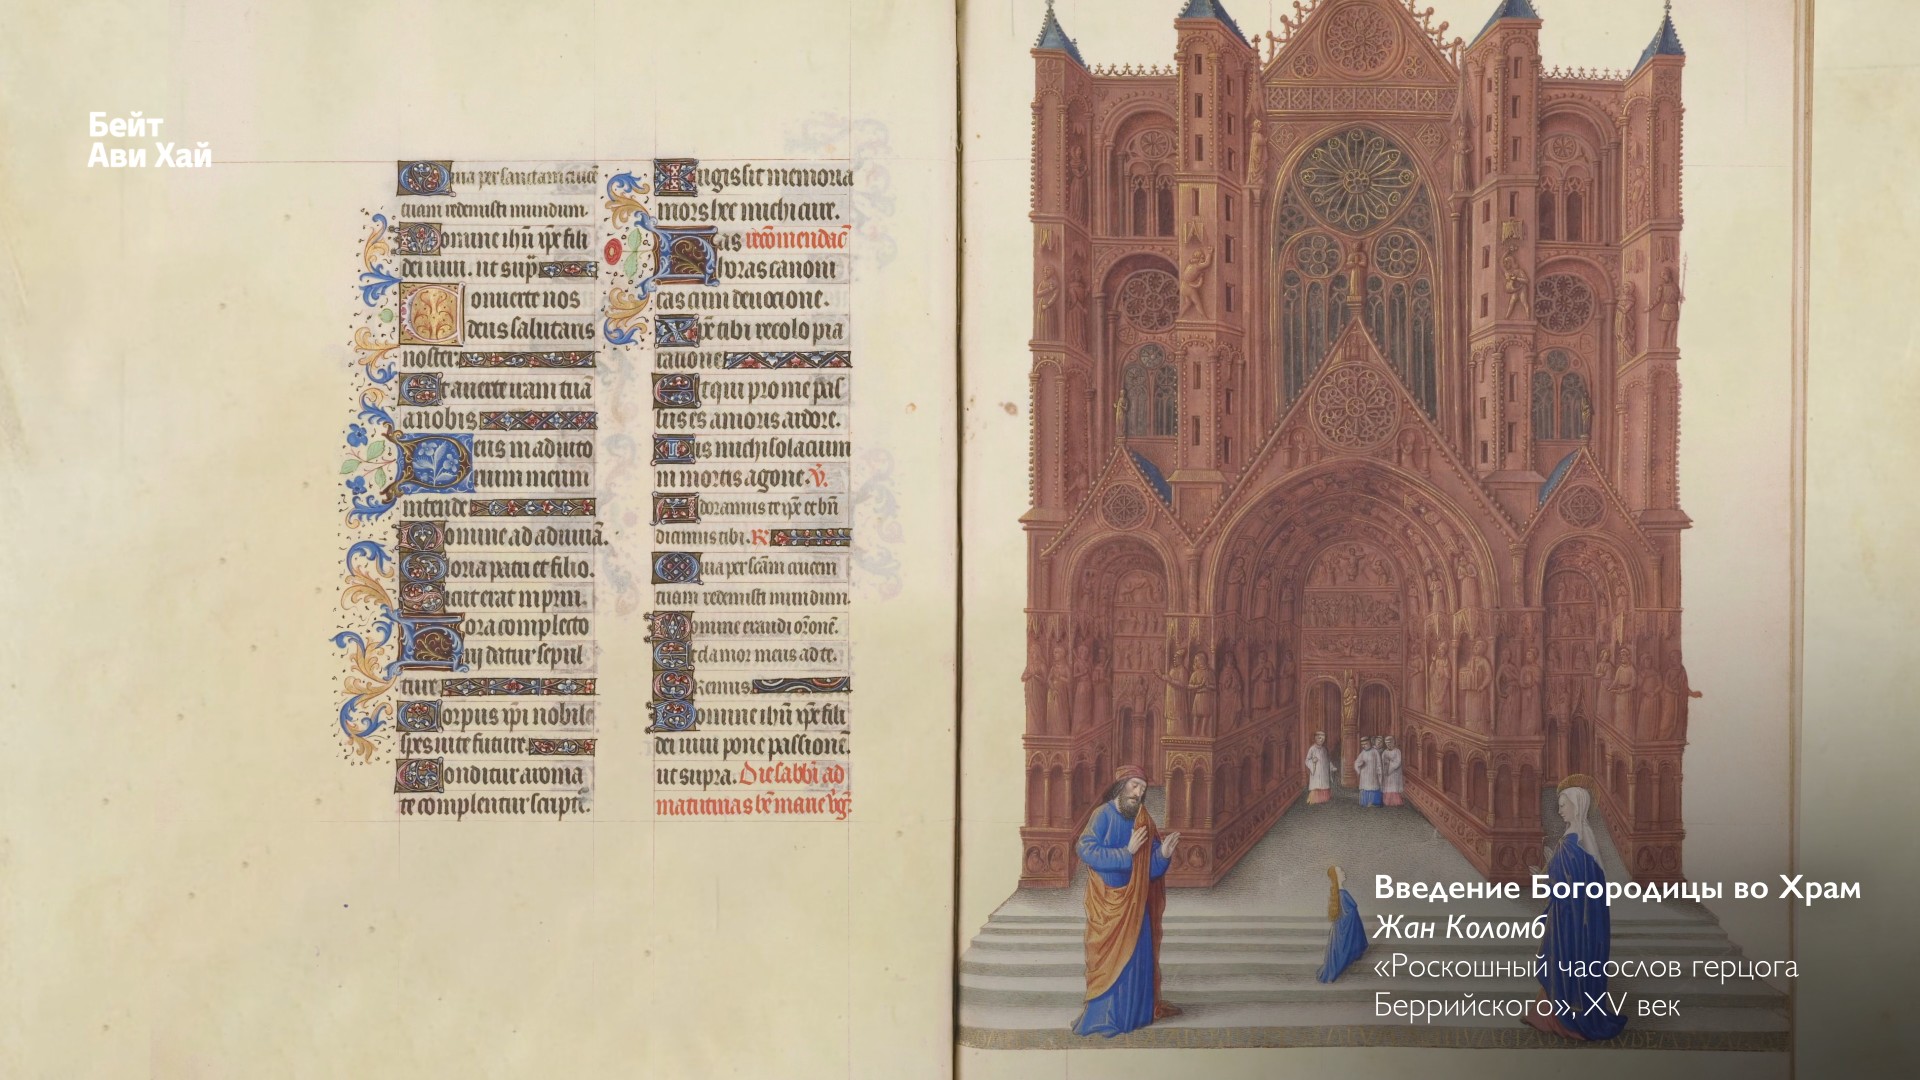 Бейт
Ави Хай
Quia per sanctam cruce
tuam redemisti mundum.
Domine ihu xpe fili
dei uiui. ut sup
Conuerte nos
deus salutaris
noster
Et auerte iram tuā
a nobis
Deus in adiuto
rium meum
intende
Domine ad adiuuā.
Gloria patri et filio.
Sicut erat in prin.
Hora completo
rij datur sepul
ture
Corpus xpi nobile
spes uite future
Conditur aroma
te complentur script.
Iugis sit memoria
mors hec michi cure.
Has recōmendac
horas canoni
cas cum deuocione.
Xpe tibi recolo pia
ratione
Et qui pro me pas
sus es amoris ardore.
Sis michi solacium
in mortis agone. V.
Adoramus te xpe et bn
dicimus tibi. R
Quia per scām crucem
tuam redemisti mundum.
Domine exaudi oronē.
Et clamor meus ad te.
Oremus
Domine ihu xpe fili
dei uiui pone passionē.
ut supra. Die sabbi ad
matutinas bē marie vg.
Введение Богородицы во Храм
Жан Коломб
«Роскошный часослов герцога
Беррийского», XV век